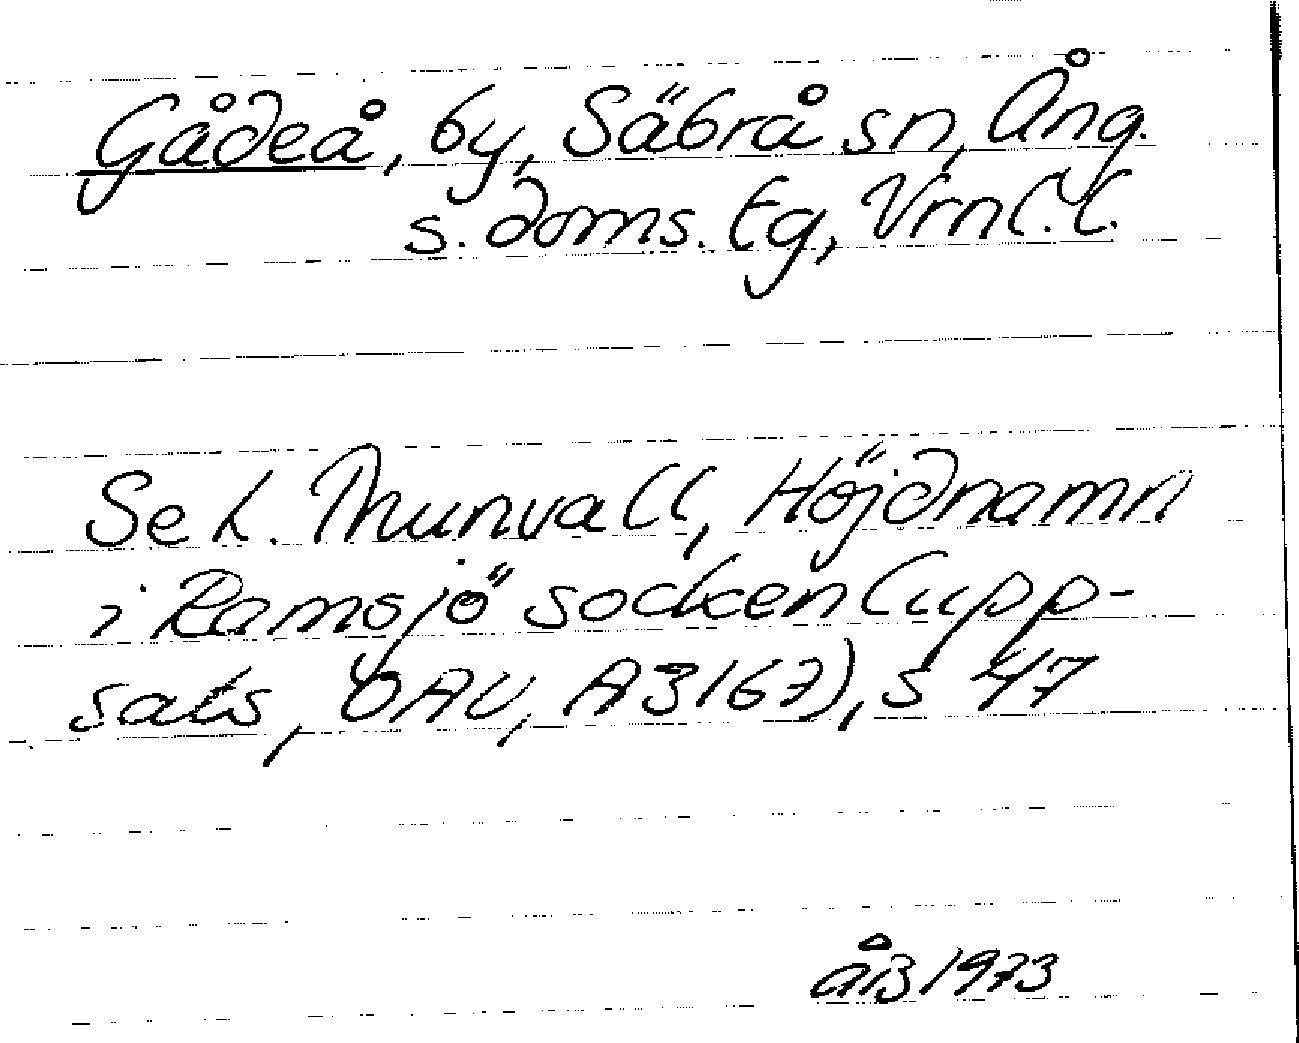 Gådeå, by, Säbrå sn, Ång.
s. doms. tg, Vrnl. l.
Se L. Thunvall, Höjdnamn
i Ramsjö socken (upp-
sats, OAU, A3167), s 47
åB 1973